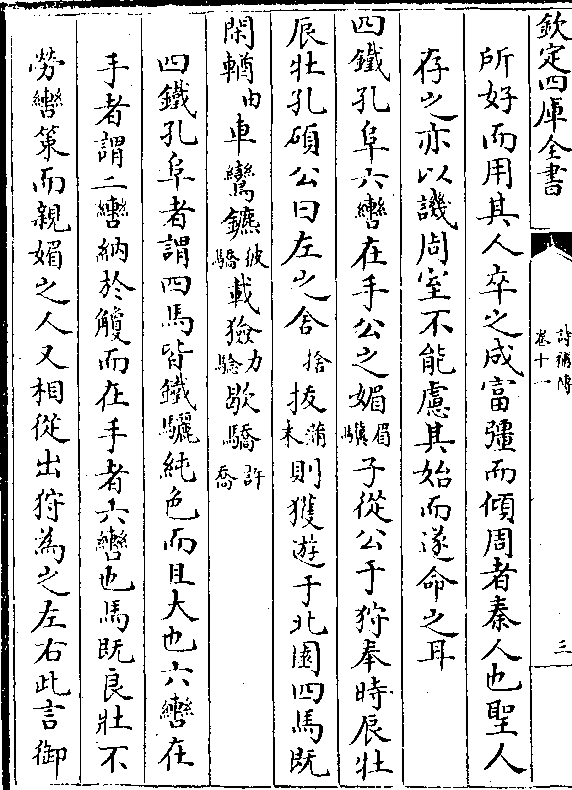 欽定四庫全書
詩補傳
卷十一
三
所好而用其人卒之成富彊而傾周者秦人也聖人
存之亦以譏周室不能慮其始而遂命之耳
四鐵孔阜六轡在手公之媚眉冀子從公于狩奉時辰牡
辰牡孔碩公曰左之舍捨拔蒲末則獲遊于北園四馬既
閑輶由車鸞鑣彼驕載獫力驗歇驕許喬
四鐵孔阜者謂四馬皆鐵驪純色而且大也六轡在
手者謂二轡納於觼而在手者六轡也馬既良壯不
勞轡策而親媚之人又相從出狩為之左右此言御